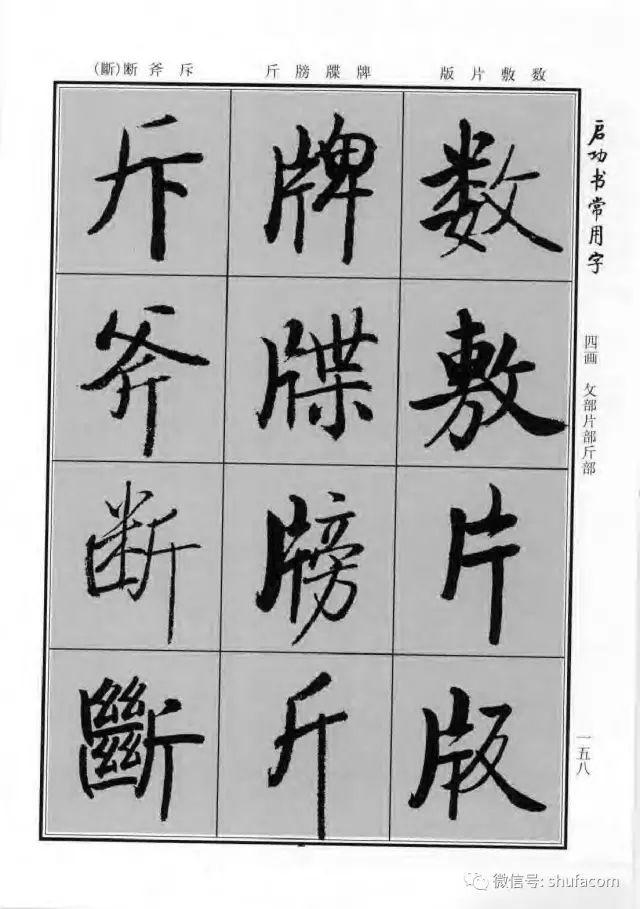 启功书常用字
四画 攵部片部斤部
一五八
数敷片版 牌牒牓斤 斥斧断(斷)
数敷片版
牌牒牓斤
斥斧断斷
微信号: shufacom